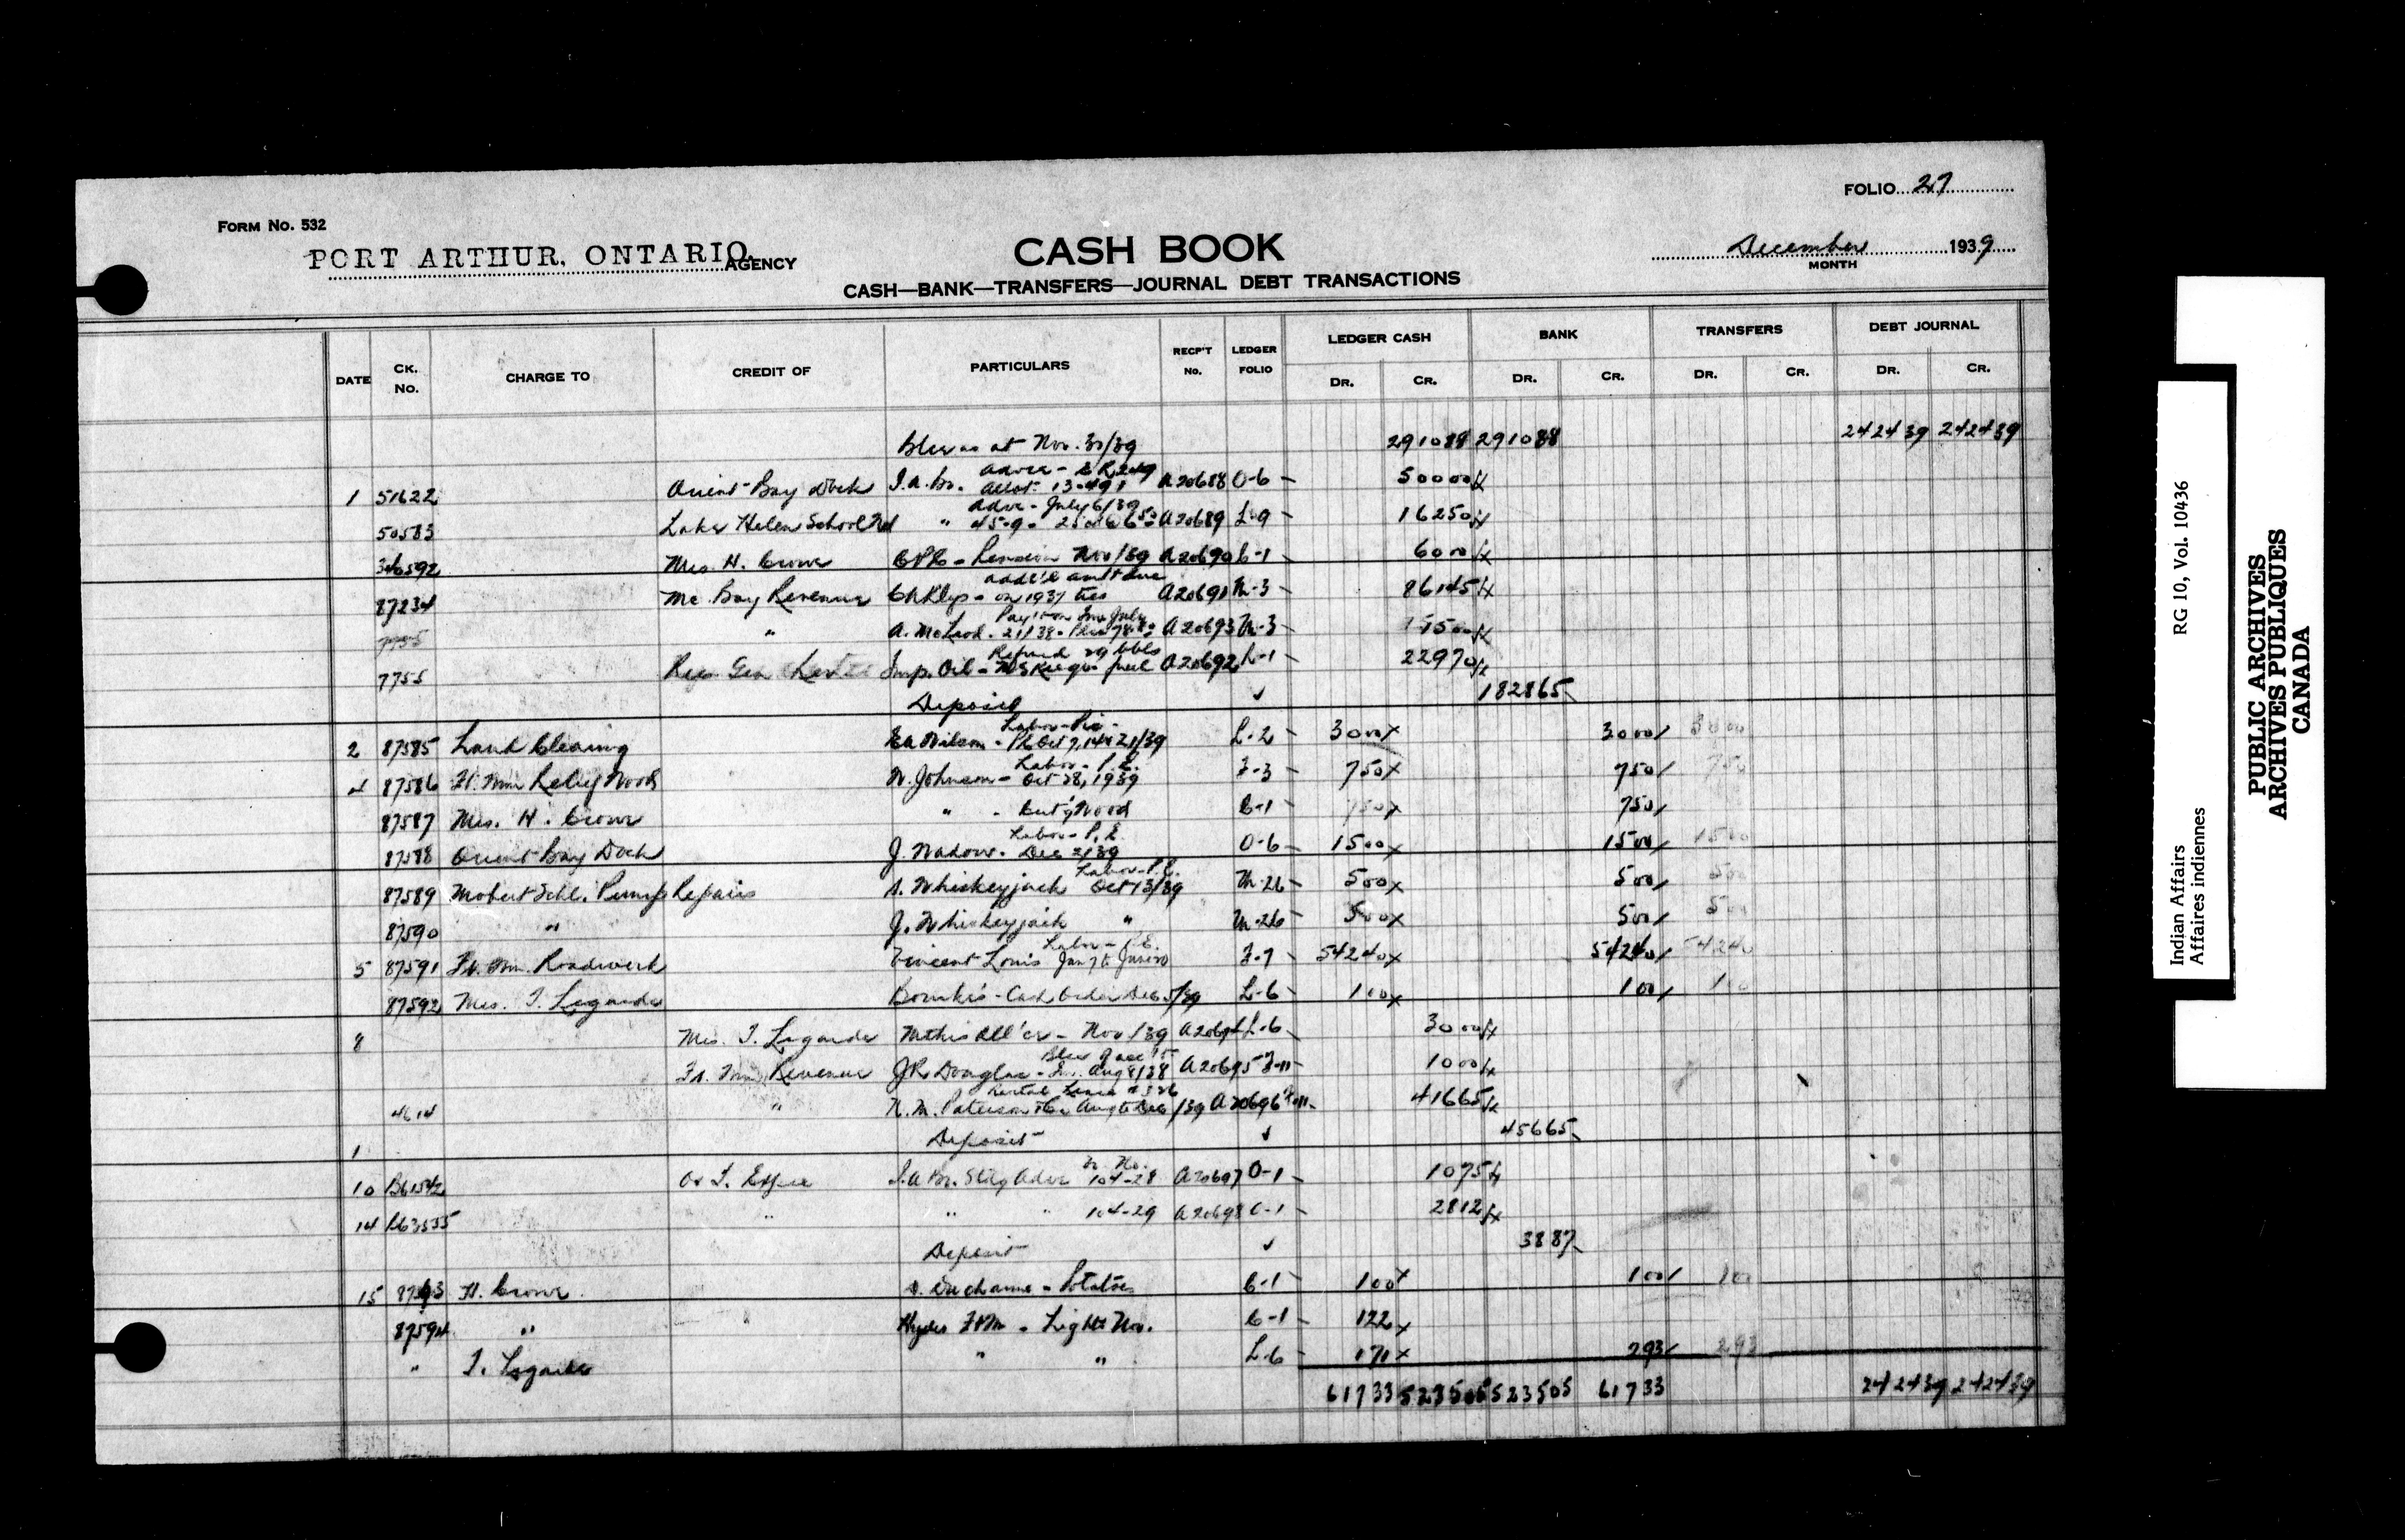 FOLIO 27
FORM NO. 532
PORT ARTHUR, ONTARIO. AGENCY
CASH BOOK
December 1939
MONTH
CASH—BANK—TRANSFERS—JOURNAL DEBT TRANSACTIONS
DATE CK. NO. CHARGE TO CREDIT OF PARTICULARS RECP'T No. LEDGER FOLIO LEDGER CASH BANK TRANSFERS DEBT JOURNAL
DR. CR. DR. CR. DR. CR. DR. CR.
as at Nov. 30/39 291088 291088 242439 242439
1 51622 Orient Bay Dock I.A. Br. Allot. 13-491 A20688 O-6 50000
Advce - July 6/39
50583 Lake Helen School " 45-9- A20689 L-9 16250
346592 Mrs. H. Crowe Nov/39 A20690 C-1 6000
87234 Mc. Bay Revenue on 1937 ties A20691 M-3 86145
" A. McLeod - 21/38 A20693 M-3 1500
Refund 29 bbls
7755 Imp. Oil - fuel A20692 R-1 22970
Deposit ✓ 182865
2 87585 Land Clearing Wilson - Oct 7, 14 & 21/39 L-2 3000 3000 3000
Labor - P.L.
4 87586 Ft. Wm Relief Wood W. Johnson - Oct 28, 1939 F-3 750 750 750
87587 Mrs. H. Crowe " - Cut'g Wood C-1 750 750
Labor - P.L.
87588 Orient Bay Dock J. Nadowe - Dec 2/39 O-6 1500 1500 1500
Labor - P.L.
87589 Mobert Schl. Pump Repairs S. Whiskeyjack Oct 13/39 M-26 500 500 500
87590 " J. Whiskeyjack " M-26 500 500 500
5 87591 Ft. Wm. Roadwork Vincent Louis F-7 54240 54240 54240
87592 Mrs. T. Legarde - Cash Order Dec 5/39 L-6 100 100 100
8 Mrs. T. Legarde Mthrs All'ce - Nov/39 L-6 3000
Ft. Wm Revenue J.R. Douglas - Aug 8/38 A20695 F-11 1000
Rental Lease #326
4614 " N.M. Paterson & Co Aug to Dec /39 A20696 F-11 41665
1 Deposit ✓ 45665
10 B61542 I.A. Br. Adv 104-28 A20697 O-1 1075
14 B63535 " " " 104-29 A20698 O-1 2812
Deposit ✓ 3887
15 87593 H. Crowe Ducharme - Potatoes C-1 100 100 100
87594 " Hydro Ft Wm - Lights Nov. C-1 122
" T. Legarde " " L-6 171 293 293
61733 523505 523505 61733 242439 242439
Indian Affairs RG 10, Vol. 10436
Affaires indiennes
PUBLIC ARCHIVES
ARCHIVES PUBLIQUES
CANADA